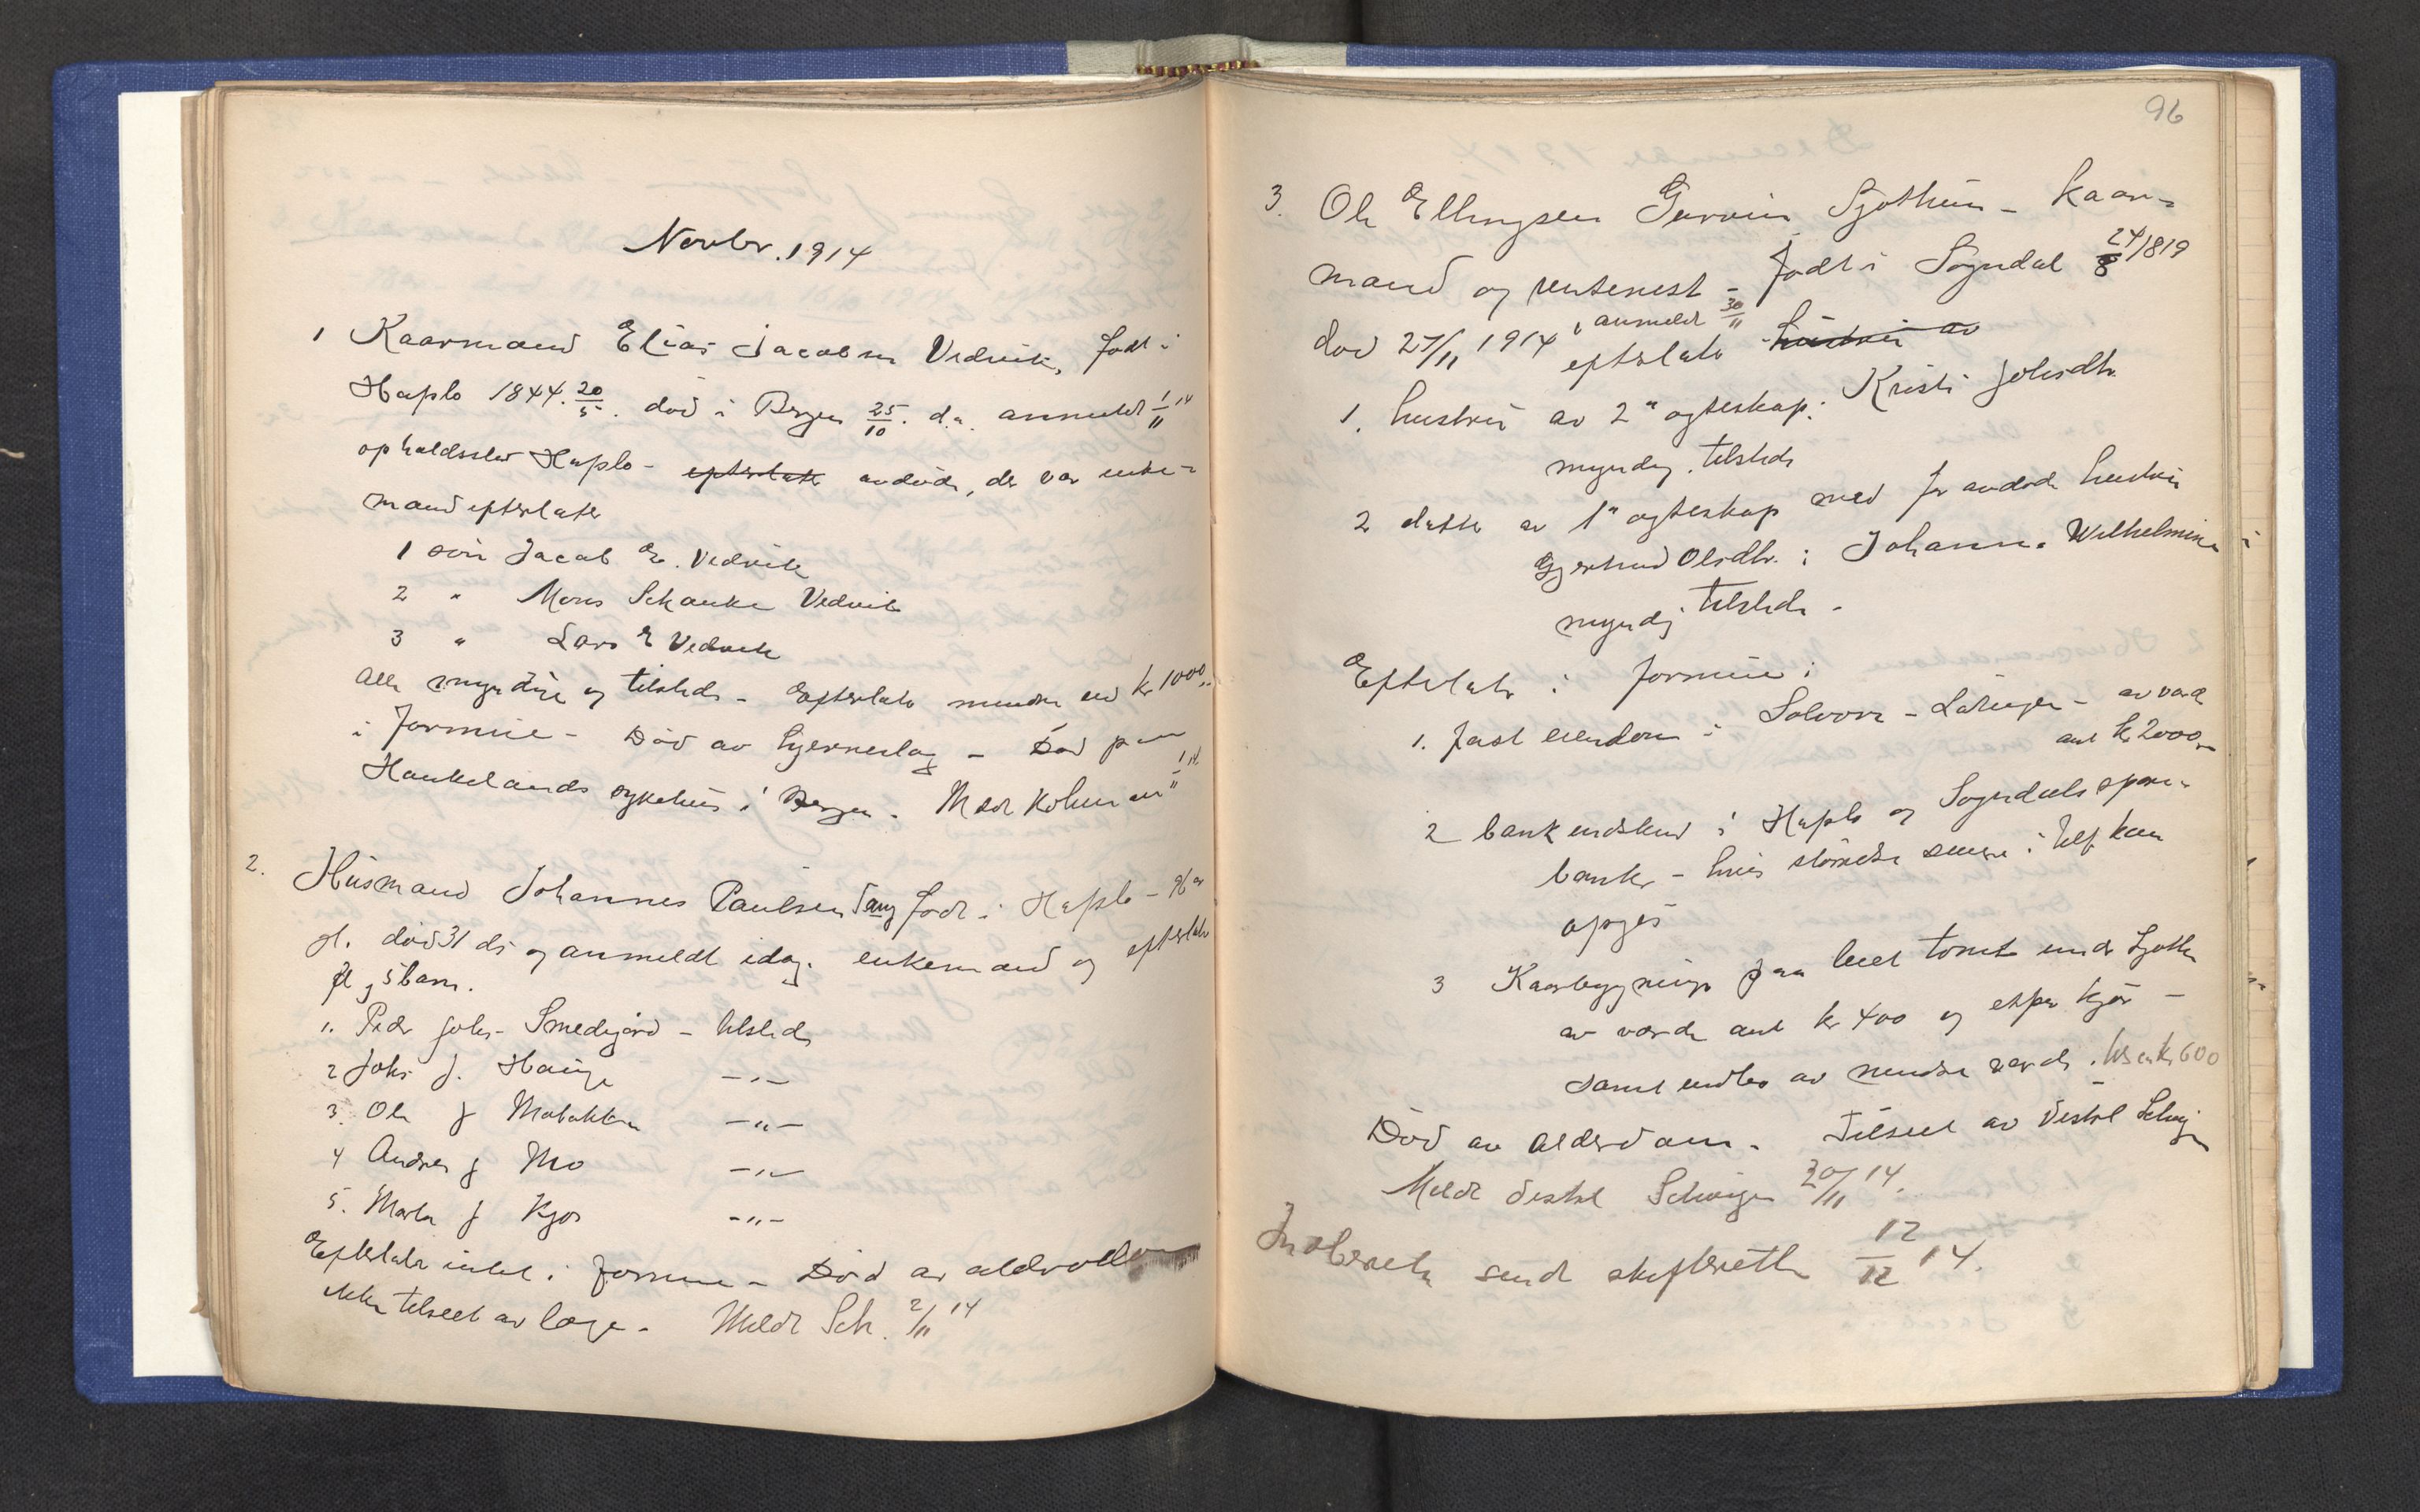 Novbr. 1914
1 Kaarmand Elias Jacobsen Vedvik, født i
Hafslo 1844 20/5. død i Bergen 25/10. d.a. anmeldt 1/11 14
opholdssted Hafslo - efterlater avdøde, der var enke-
mand efterlater
1 søn Jacob E. Vedvik
2 " Mons Schanke Vedvik
3 " Lars E Vedvik
Alle myndige og tilstede - Efterlater mindre end kr 1000,-
i formue - Død av hjerneslag - Død paa
Haukelands sykehus i Bergen. 1/11 14
2. Husmand Johannes Paulsen Tang født i Hafslo - 96 aar
gl. død 31 ds og anmeldt idag. enkemand og efterlater
5 barn.
1. Peder Johs. Smedegjord - tilstede
2 Johs J. Hauge -"-
3. Ole J -"-
4 Andres J Mo -"-
5. Marta J Kjos -"-
Efterlater intet i formue - Død av
ikke tilseet av læge. Meldt Sch. 2/11 14
96
3. Ole Ellingsen Gurvin Sjøthun - kaar-
mand og rentenist - født i Sogndal 24/8 1819
død 27/11 1914, anmeldt 30/11 efterlater hustru av
1. hustru av 2" egteskap: Kristi Johsdtr.
myndig. tilstede
2 datter av 1" egteskap med før avdøde hustru
Gjertrud Olsdtr. : Johanne Wilhelmine
myndig tilstede -
Efterlater i formue:
1. fast eiendom i Solvorn - av værdi
ant kr 2000,-
2 bankindskud i Hafslo og Sogndals spare-
banker - hvis størrelse senere kan
opgis
3 Kaarbygning paa leiet tomt under
av værdi ant kr 400 og et par kjør -
samt indbo av mindre værdi. kr 600
Død av alderdom. Tilseet av distrl Schwigen
Meldt distrl Schwigen 30/11 14.
Indberetn sendt skifteretten 12/12 14.